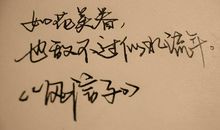 如花美眷,
也敌不过似水流年。
《 信子》